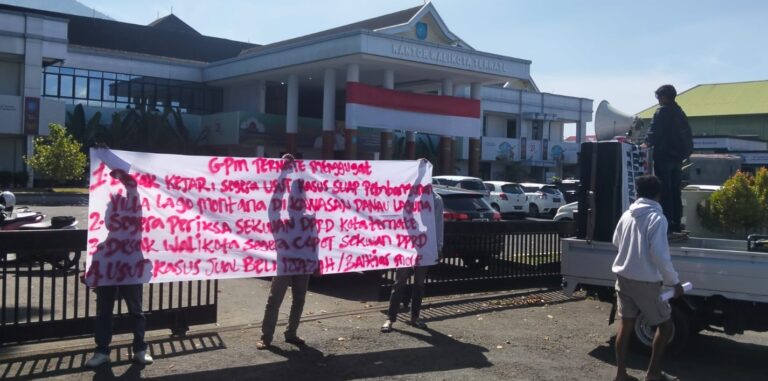 KANTOR WALIKOTA TERNATE
GPM TERNATE menggugat
1. Desak KEJARI segera USUT KASUS SUAP Pembangunan
VILLA LAGO montana DI KAWASAN DANAU LAGUNA
2. Segera Periksa SEKWAN DPRD Kota ternate
3. Desak WALIKOTA segera CAPOT SEKWAN DPRD
4. USUT KASUS JUAL BELI IJAZAH /